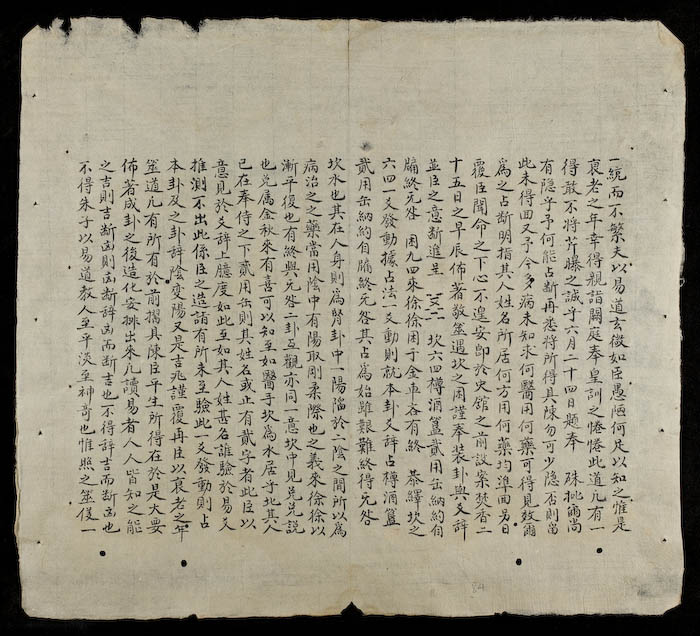 一統而不繁夫以易道玄微如臣愚陋何足以知之惟是
衰老之年幸得親詣闕庭奉皇訓之惓惓此道凡有一
得敢不將芹曝之誠乎六月二十四日題奉 硃批爾尚
有隱乎予何能占斷再悉將所得具陳勿可少隱否則尚
此未得回又予今多病未知求何醫用何藥可得見效爾
為之占斷明指其人姓名所居何方用何藥均準回另日
覆臣聞命之下心不遑安即於史館之前設案焚香二
十五日之早辰佈蓍敬筮遇坎之困謹奉裝卦與爻辞
並臣之意断進呈 坎六四樽酒簋貳用缶納約自
牖終无咎 困九四來徐徐困于金車吝有終 恭繹坎之
六四一爻發動據占法一爻動則就本卦爻辞占樽酒簋
貳用缶納約自牖終无咎其占為始雖艱難終得无咎
坎水也其在人身則為腎卦中一陽陷於二陰之間所以為
病治之之藥當用陰中有陽取剛柔際也之義來徐徐以
漸平復也有終與无咎二卦互觀亦同一意坎中見兌兌説
也兌属金秋來有喜可以知至如醫手坎為水居于北其人
已在奉侍之下貳用缶則其姓名或止有貳字者此臣以
意見於爻辞上臆度如此至如其人姓甚名誰驗於易又
推測不出此係臣之造詣有所未至驗此一爻發動則占
本卦及之卦辞陰變陽又是吉兆謹覆再臣以衰老之年
筮道凢有所有於前摺具陳臣平生所得在於是大要
佈蓍成卦之後造化安排出來凢讀易者人人皆知之能
之吉則吉断凶則凶断辞凶而断吉也不得辞吉而断凶也
不得朱子以易道教人至平淡至神奇也惟照之筮儀一